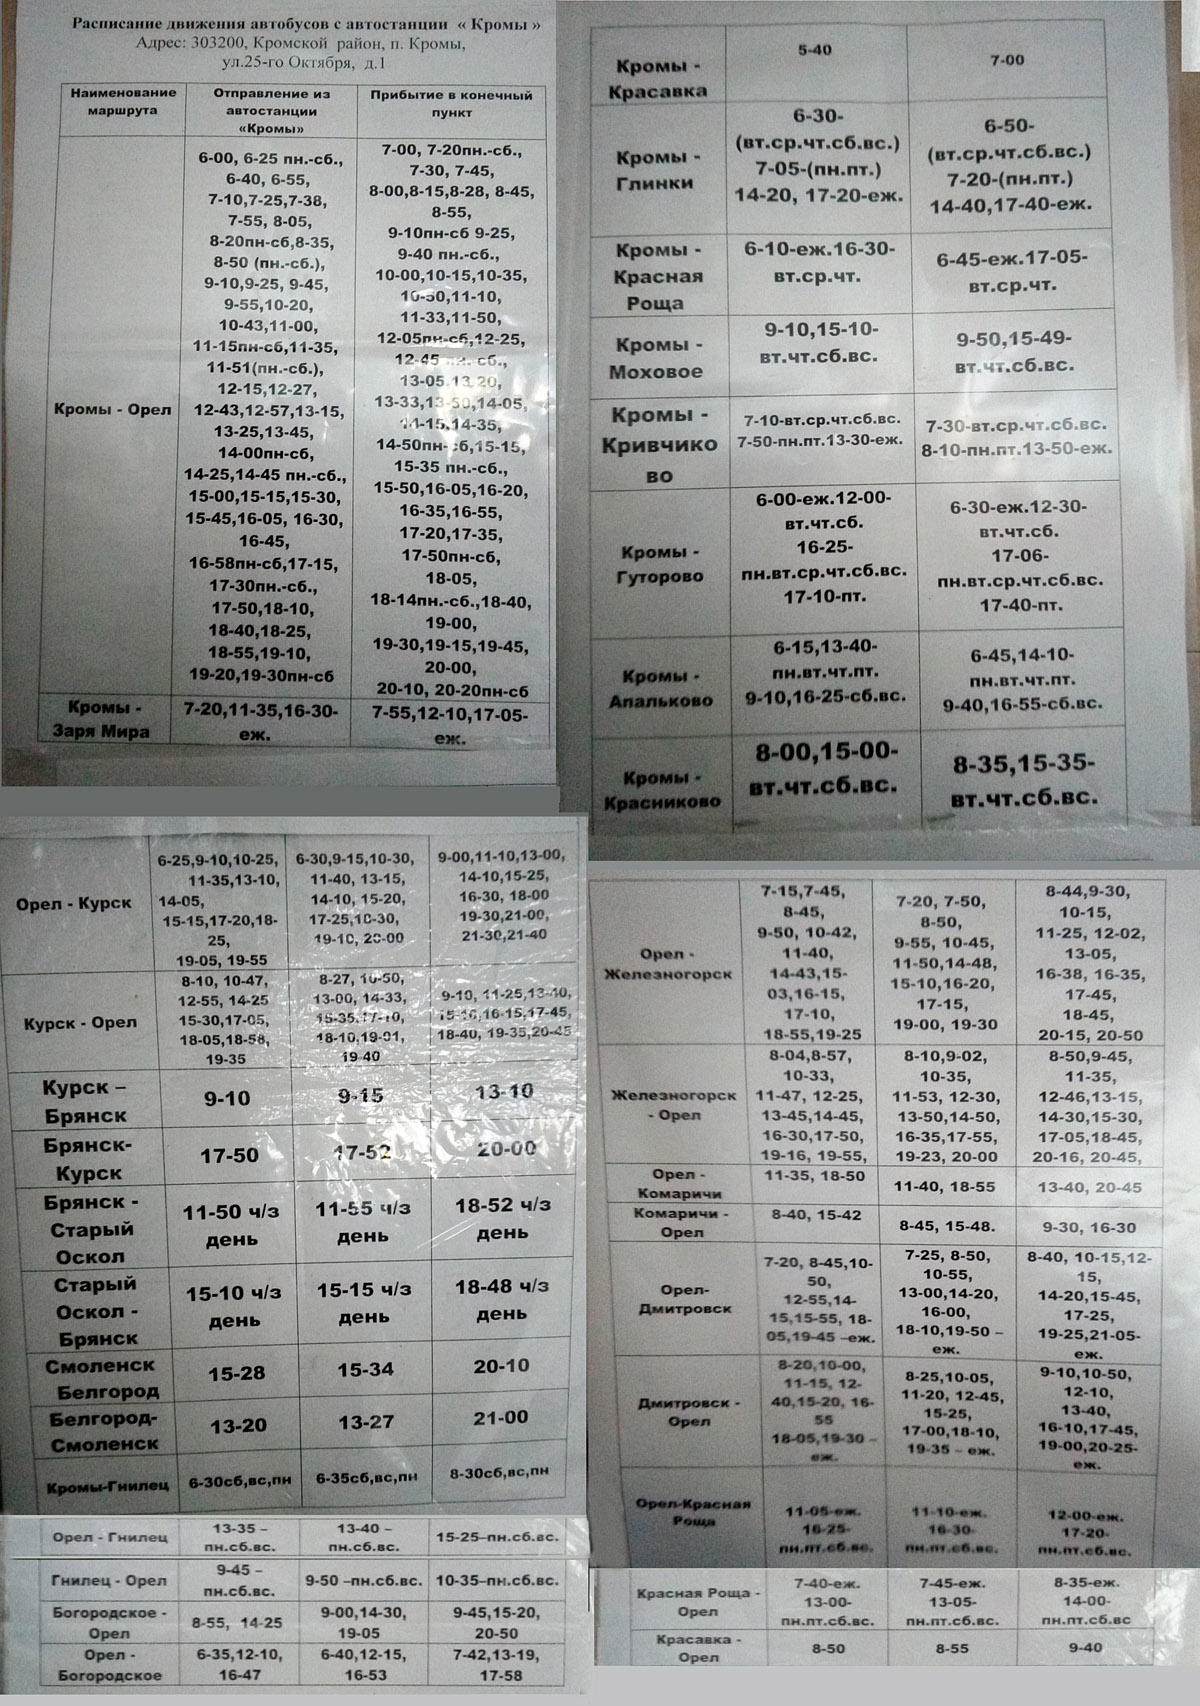 Расписание движения автобусов с автостанции « Кромы »
Адрес: 303200, Кромской район, п. Кромы,
ул.25-го Октября, д.1
Наименование
маршрута
Отправление из
автостанции
«Кромы»
Прибытие в конечный
пункт
Кромы - Орел
6-00, 6-25 пн.-сб.,
6-40, 6-55,
7-10,7-25,7-38,
7-55, 8-05,
8-20пн-сб,8-35,
8-50 (пн.-сб.),
9-10,9-25, 9-45,
9-55,10-20,
10-43,11-00,
11-15пн-сб,11-35,
11-51(пн.-сб.),
12-15,12-27,
12-43,12-57,13-15,
13-25,13-45,
14-00пн-сб,
14-25,14-45 пн.-сб.,
15-00,15-15,15-30,
15-45,16-05, 16-30,
16-45,
16-58пн-сб,17-15,
17-30пн.-сб.,
17-50,18-10,
18-40,18-25,
18-55,19-10,
19-20,19-30пн-сб
7-00, 7-20пн.-сб.,
7-30, 7-45,
8-00,8-15,8-28, 8-45,
8-55,
9-10пн-сб 9-25,
9-40 пн.-сб.,
10-00,10-15,10-35,
10-50,11-10,
11-33,11-50,
12-05пн-сб,12-25,
12-45 пн.-сб.,
13-05,13,20,
13-33,13-50,14-05,
14-15,14-35,
14-50пн-сб,15-15,
15-35 пн.-сб.,
15-50,16-05,16-20,
16-35,16-55,
17-20,17-35,
17-50пн-сб,
18-05,
18-14пн.-сб.,18-40,
19-00,
19-30,19-15,19-45,
20-00,
20-10, 20-20пн-сб
Кромы -
Заря Мира
7-20,11-35,16-30-
еж.
7-55,12-10,17-05-
еж.
Кромы -
Красавка
5-40
7-00
Кромы -
Глинки
6-30-
(вт.ср.чт.сб.вс.)
7-05-(пн.пт.)
14-20, 17-20-еж.
6-50-
(вт.ср.чт.сб.вс.)
7-20-(пн.пт.)
14-40,17-40-еж.
Кромы -
Красная
Роща
6-10-еж.16-30-
вт.ср.чт.
6-45-еж.17-05-
вт.ср.чт.
Кромы -
Моховое
9-10,15-10-
вт.чт.сб.вс.
9-50,15-49-
вт.чт.сб.вс.
Кромы -
Кривчико
во
7-10-вт.ср.чт.сб.вс.
7-50-пн.пт.13-30-еж.
7-30-вт.ср.чт.сб.вс.
8-10-пн.пт.13-50-еж.
Кромы -
Гуторово
6-00-еж.12-00-
вт.чт.сб.
16-25-
пн.вт.ср.чт.сб.вс.
17-10-пт.
6-30-еж.12-30-
вт.чт.сб.
17-06-
пн.вт.ср.чт.сб.вс.
17-40-пт.
Кромы -
Апальково
6-15,13-40-
пн.вт.чт.пт.
9-10,16-25-сб.вс.
6-45,14-10-
пн.вт.чт.пт.
9-40,16-55-сб.вс.
Кромы -
Красниково
8-00,15-00-
вт.чт.сб.вс.
8-35,15-35-
вт.чт.сб.вс.
Орел - Курск
6-25,9-10,10-25,
11-35,13-10,
14-05,
15-15,17-20,18-
25,
19-05, 19-55
6-30,9-15,10-30,
11-40, 13-15,
14-10, 15-20,
17-25,18-30,
19-10, 20-00
9-00,11-10,13-00,
14-10,15-25,
16-30, 18-00
19-30,21-00,
21-30,21-40
Курск - Орел
8-10, 10-47,
12-55, 14-25
15-30,17-05,
18-05,18-58,
19-35
8-27, 10-50,
13-00, 14-33,
15-35,17-10,
18-10,19-01,
19-40
9-10, 11-25,13-40,
15-10,16-15,17-45,
18-40, 19-35,20-45
Курск –
Брянск
9-10
9-15
13-10
Брянск-
Курск
17-50
17-52
20-00
Брянск -
Старый
Оскол
11-50 ч/з
день
11-55 ч/з
день
18-52 ч/з
день
Старый
Оскол -
Брянск
15-10 ч/з
день
15-15 ч/з
день
18-48 ч/з
день
Смоленск
Белгород
15-28
15-34
20-10
Белгород-
Смоленск
13-20
13-27
21-00
Кромы-Гнилец
6-30сб,вс,пн
6-35сб,вс,пн
8-30сб,вс,пн
Орел - Гнилец
13-35 –
пн.сб.вс.
13-40 –
пн.сб.вс.
15-25–пн.сб.вс.
Гнилец - Орел
9-45 –
пн.сб.вс.
9-50 –пн.сб.вс.
10-35–пн.сб.вс.
Богородское -
Орел
8-55, 14-25
9-00,14-30,
19-05
9-45,15-20,
20-50
Орел -
Богородское
6-35,12-10,
16-47
6-40,12-15,
16-53
7-42,13-19,
17-58
Орел -
Железногорск
7-15,7-45,
8-45,
9-50, 10-42,
11-40,
14-43,15-
03,16-15,
17-10,
18-55,19-25
7-20, 7-50,
8-50,
9-55, 10-45,
11-50,14-48,
15-10,16-20,
17-15,
19-00, 19-30
8-44,9-30,
10-15,
11-25, 12-02,
13-05,
16-38, 16-35,
17-45,
18-45,
20-15, 20-50
Железногорск
- Орел
8-04,8-57,
10-33,
11-47, 12-25,
13-45,14-45,
16-30,17-50,
19-16, 19-55,
8-10,9-02,
10-35,
11-53, 12-30,
13-50,14-50,
16-35,17-55,
19-23, 20-00
8-50,9-45,
11-35,
12-46,13-15,
14-30,15-30,
17-05,18-45,
20-16, 20-45,
Орел -
Комаричи
11-35, 18-50
11-40, 18-55
13-40, 20-45
Комаричи -
Орел
8-40, 15-42
8-45, 15-48.
9-30, 16-30
Орел-
Дмитровск
7-20, 8-45,10-
50,
12-55,14-
15,15-55, 18-
05,19-45 –еж.
7-25, 8-50,
10-55,
13-00,14-20,
16-00,
18-10,19-50 –
еж.
8-40, 10-15,12-
15,
14-20,15-45,
17-25,
19-25,21-05-
еж.
Дмитровск -
Орел
8-20,10-00,
11-15, 12-
40,15-20, 16-
55
18-05,19-30 –
еж.
8-25,10-05,
11-20, 12-45,
15-25,
17-00,18-10,
19-35 – еж.
9-10,10-50,
12-10,
13-40,
16-10,17-45,
19-00,20-25-
еж.
Орел-Красная
Роща
11-05-еж.
16-25-
пн.пт.сб.вс.
11-10-еж.
16-30-
пн.пт.сб.вс.
12-00-еж.
17-20-
пн.пт.сб.вс.
Красная Роща -
Орел
7-40-еж.
13-00-
пн.пт.сб.вс.
7-45-еж.
13-05-
пн.пт.сб.вс.
8-35-еж.
14-00-
пн.пт.сб.вс
Красавка -
Орел
8-50
8-55
9-40